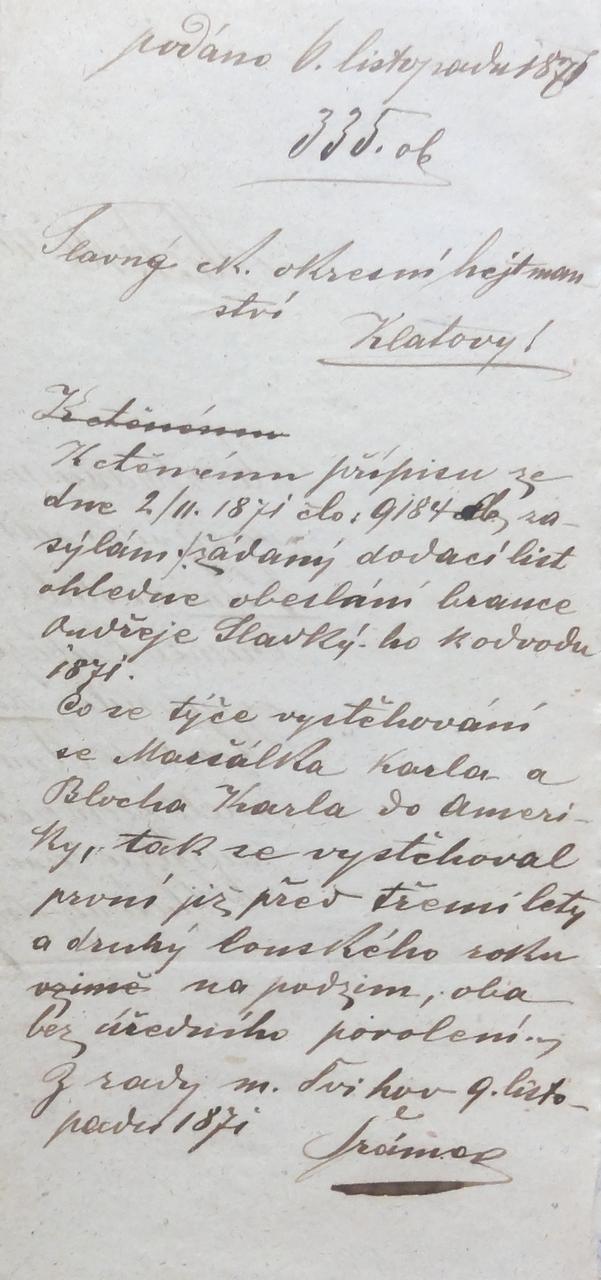 podáno 6. listopadu 1871
335. ob
Slavný ck. okresní hejtman-
ství
Klatovy!
K ctěnému
K ctěnému přípisu ze
dne 2/11. 1871 člo: 9184 za-
sýlám žádaný dodací list
ohledne obeslání brance
Ondřeje Slavký-ho k odvodu
1871.
Co se týče vystěhování
se Maršálka Karla a
Blocha Karla do Ameri-
ky, tak se vystěhoval
první již před třemi lety
a druhý lonského roku
vzimě na podzim, oba
bez úředního povolení.
Z rady m. Švihov 9. listo-
padu 1871
Šrámek